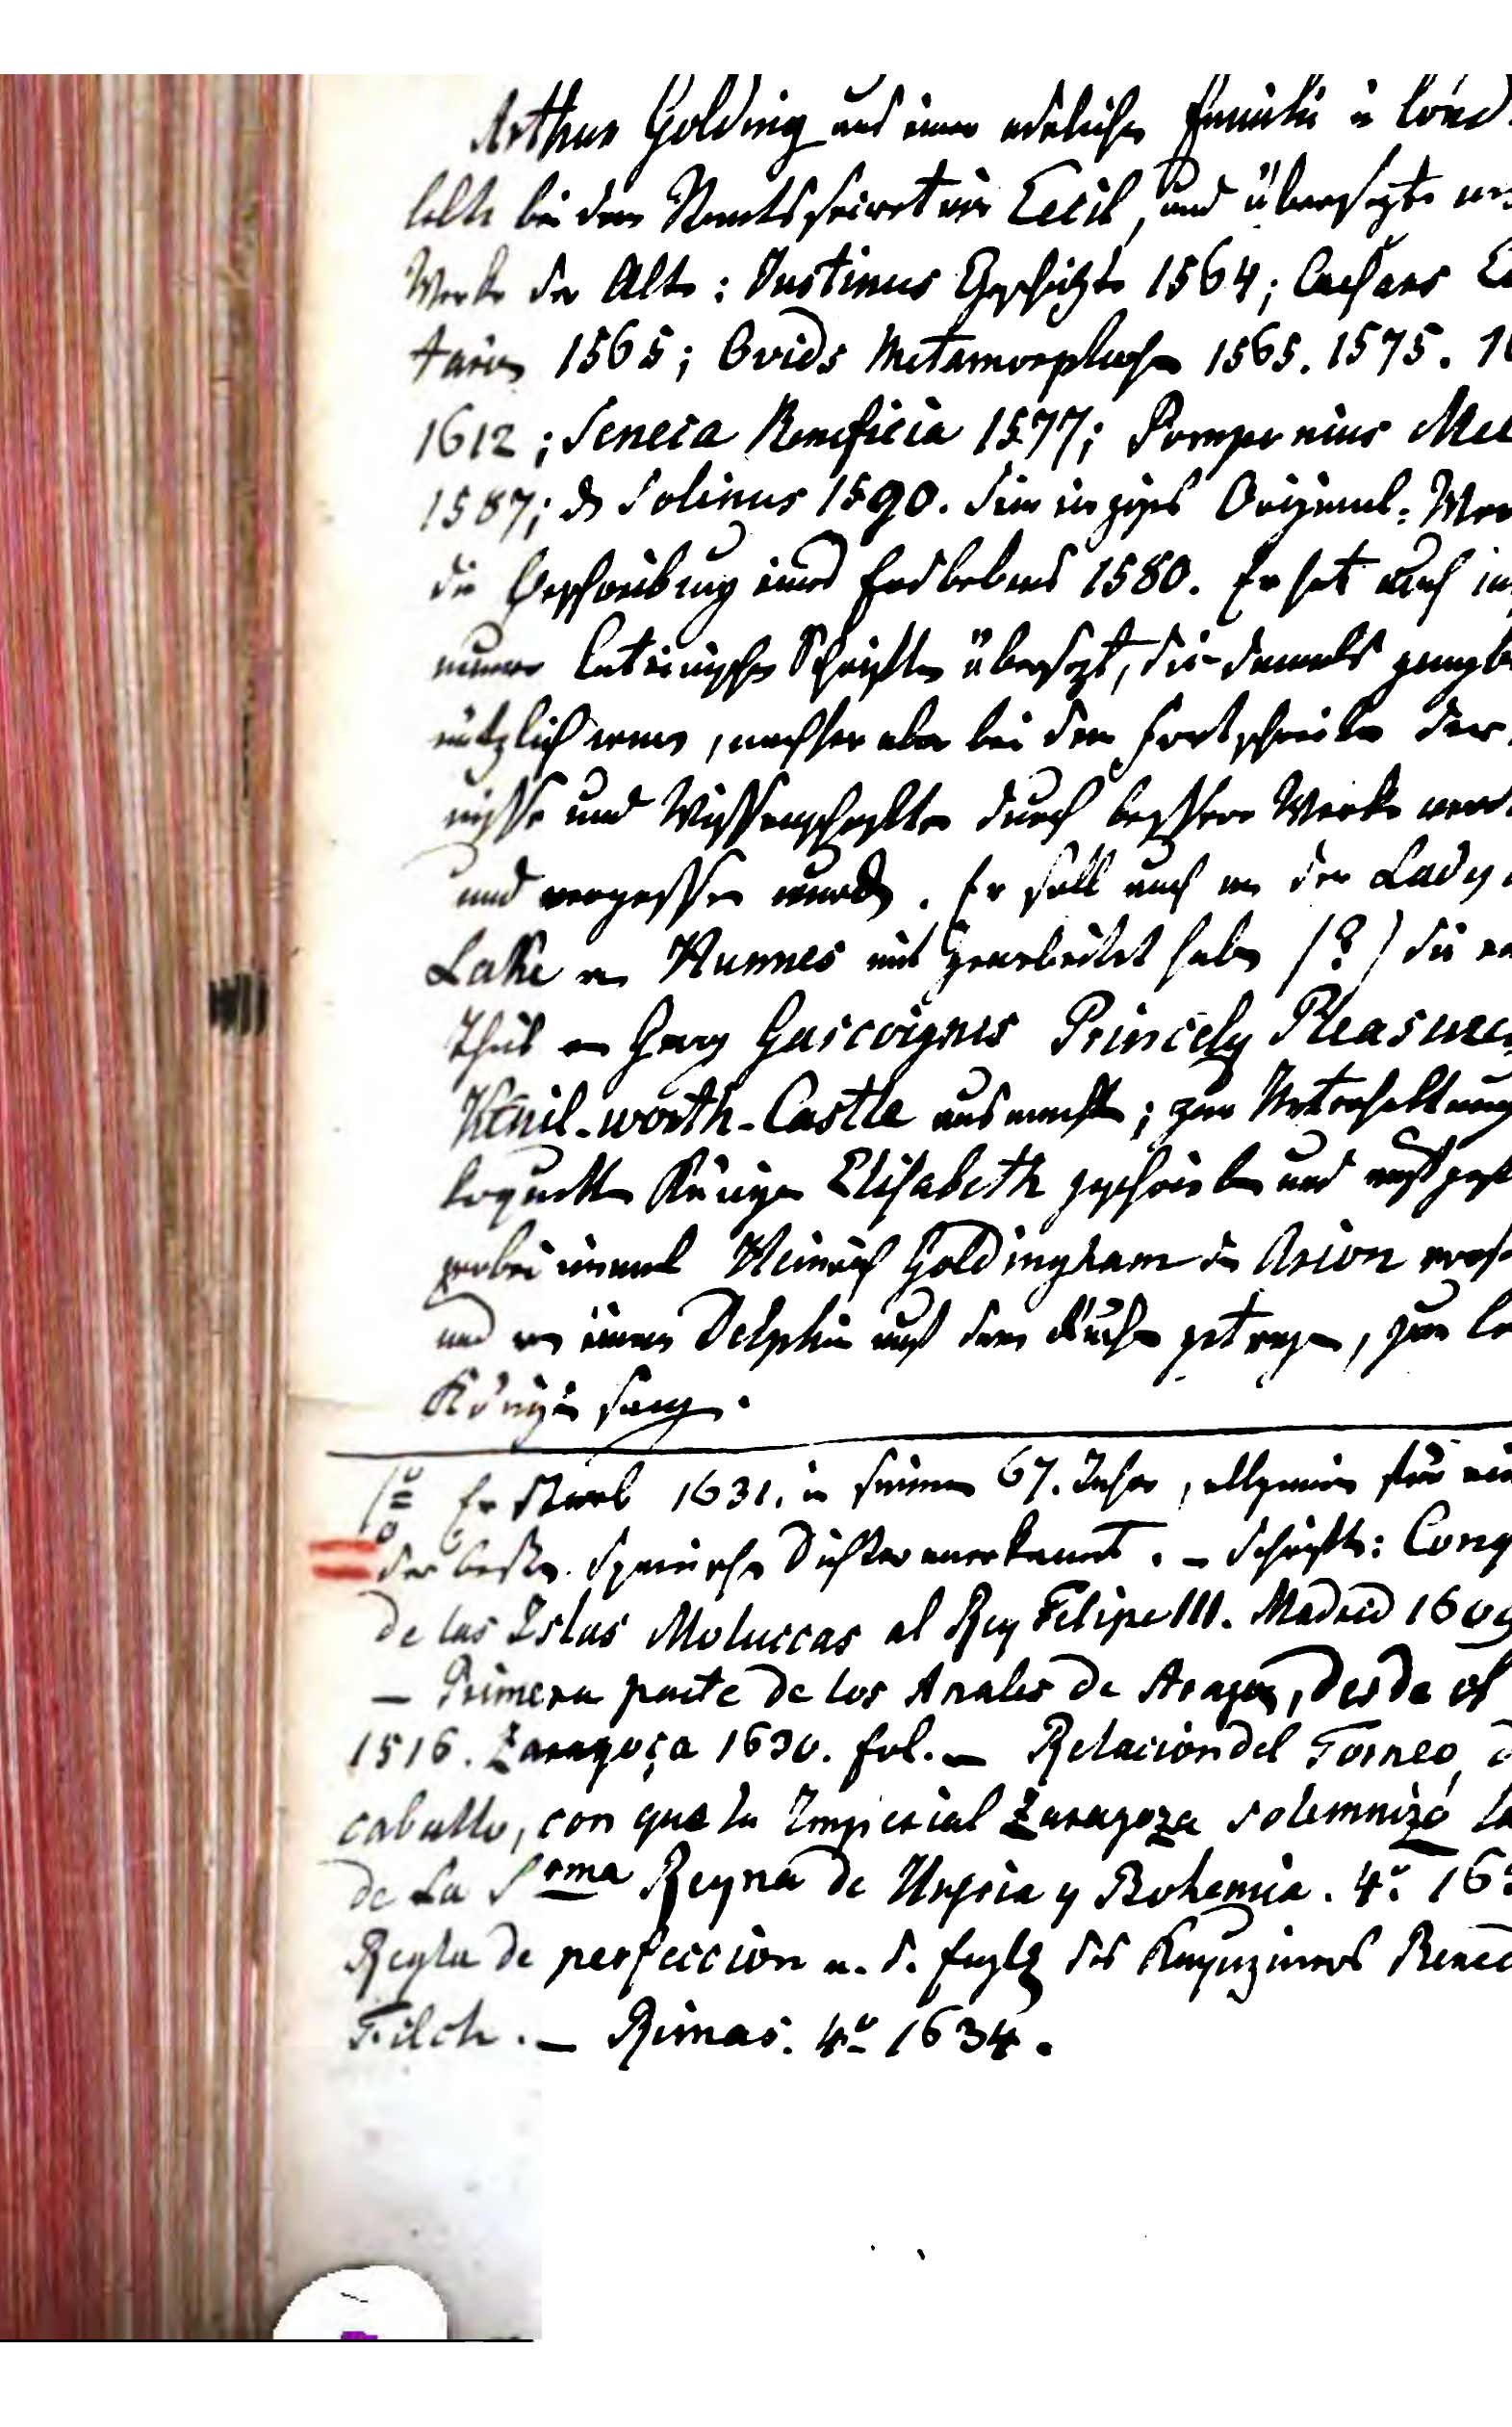 Arthur Golding aus einer adelichen Familie in Lond
lebte bei dem Staatssecretair Cecil, und übersezte
Werke der Alten: Justinus Geschichte 1564; Caesars Co
tarien 1565; Ovids Metamorphosen 1565. 1575. 1
1612; Seneca Beneficia 1577; Pomponius Mel
1587; den Solinus 1590. Sein einziges Original-Wer
die Beschreibung eines Erdbebens 1580. Er hat auch
neuere lateinische Schriften übersezt, die damals gangb
nützlich waren, nachher aber bei den Fortschritten der
nisse und Wissenschaften durch bessere Werke verd
und vergessen wurden. Er soll auch an der Lady
Lake von Hunnes mit gearbeitet haben (?) die
Theil von Georg Gascoignes Princely Pleasures
Kenil-worth-Castle ausmachte; zur Unterhaltung
koquetten Königin Elisabeth geschrieben und aufgef
wobei einmal Heinrich Goldingham den Arion
und von einem Delphin auf dem Rücken getragen, zum Lo
Königin sang.
Er starb 1631. in seinem 67. Jahre, allgemein für ein
der besten Spanischen Dichter anerkannt. – Schriften: Conq
de las Islas Moluccas al Rey Felipe III. Madrid 1609
– Primera parte de los Anales de Aragon, desde el
1516. Zaragoça 1630. fol. – Relacion del Torneo d
caballo, con que la Imperial Zaragoza solemnizó la
de La Srma Reyna de Ungria y Bohemia. 4º. 163
Regla de perfeccion a. d. Englz des Kapuziners Bened
Filch. – Rimas. 4º 1634.